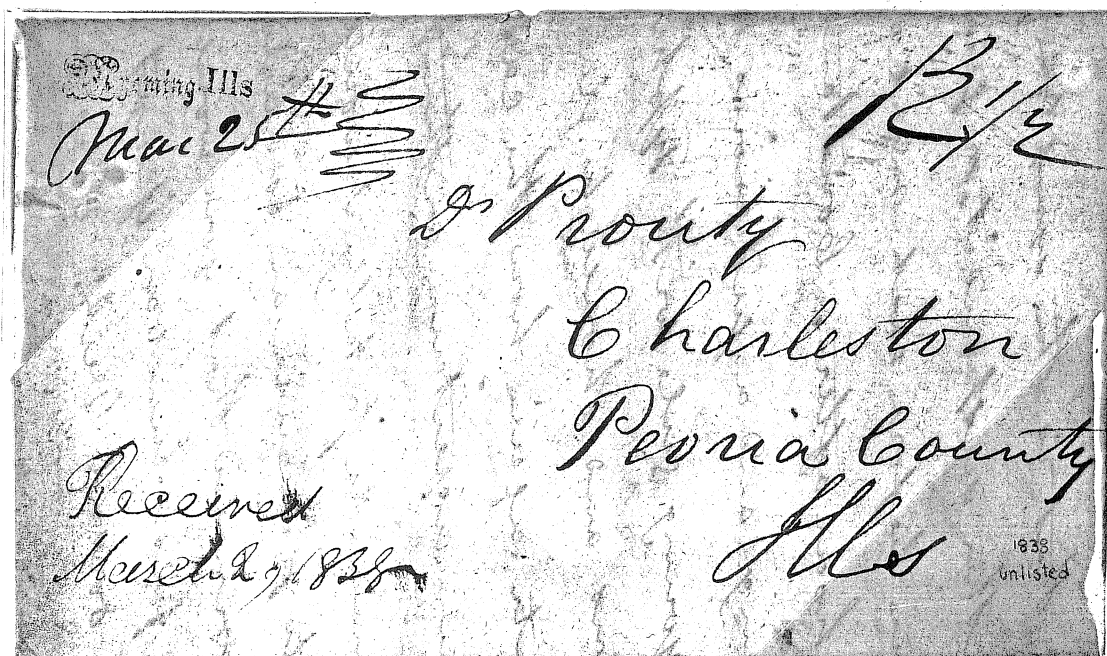 Wyoming Ills
Mar 25th
12 1/2
Dr Prouty
Charleston
Peoria County
Ills
Received
March 29 1838
1838
unlisted